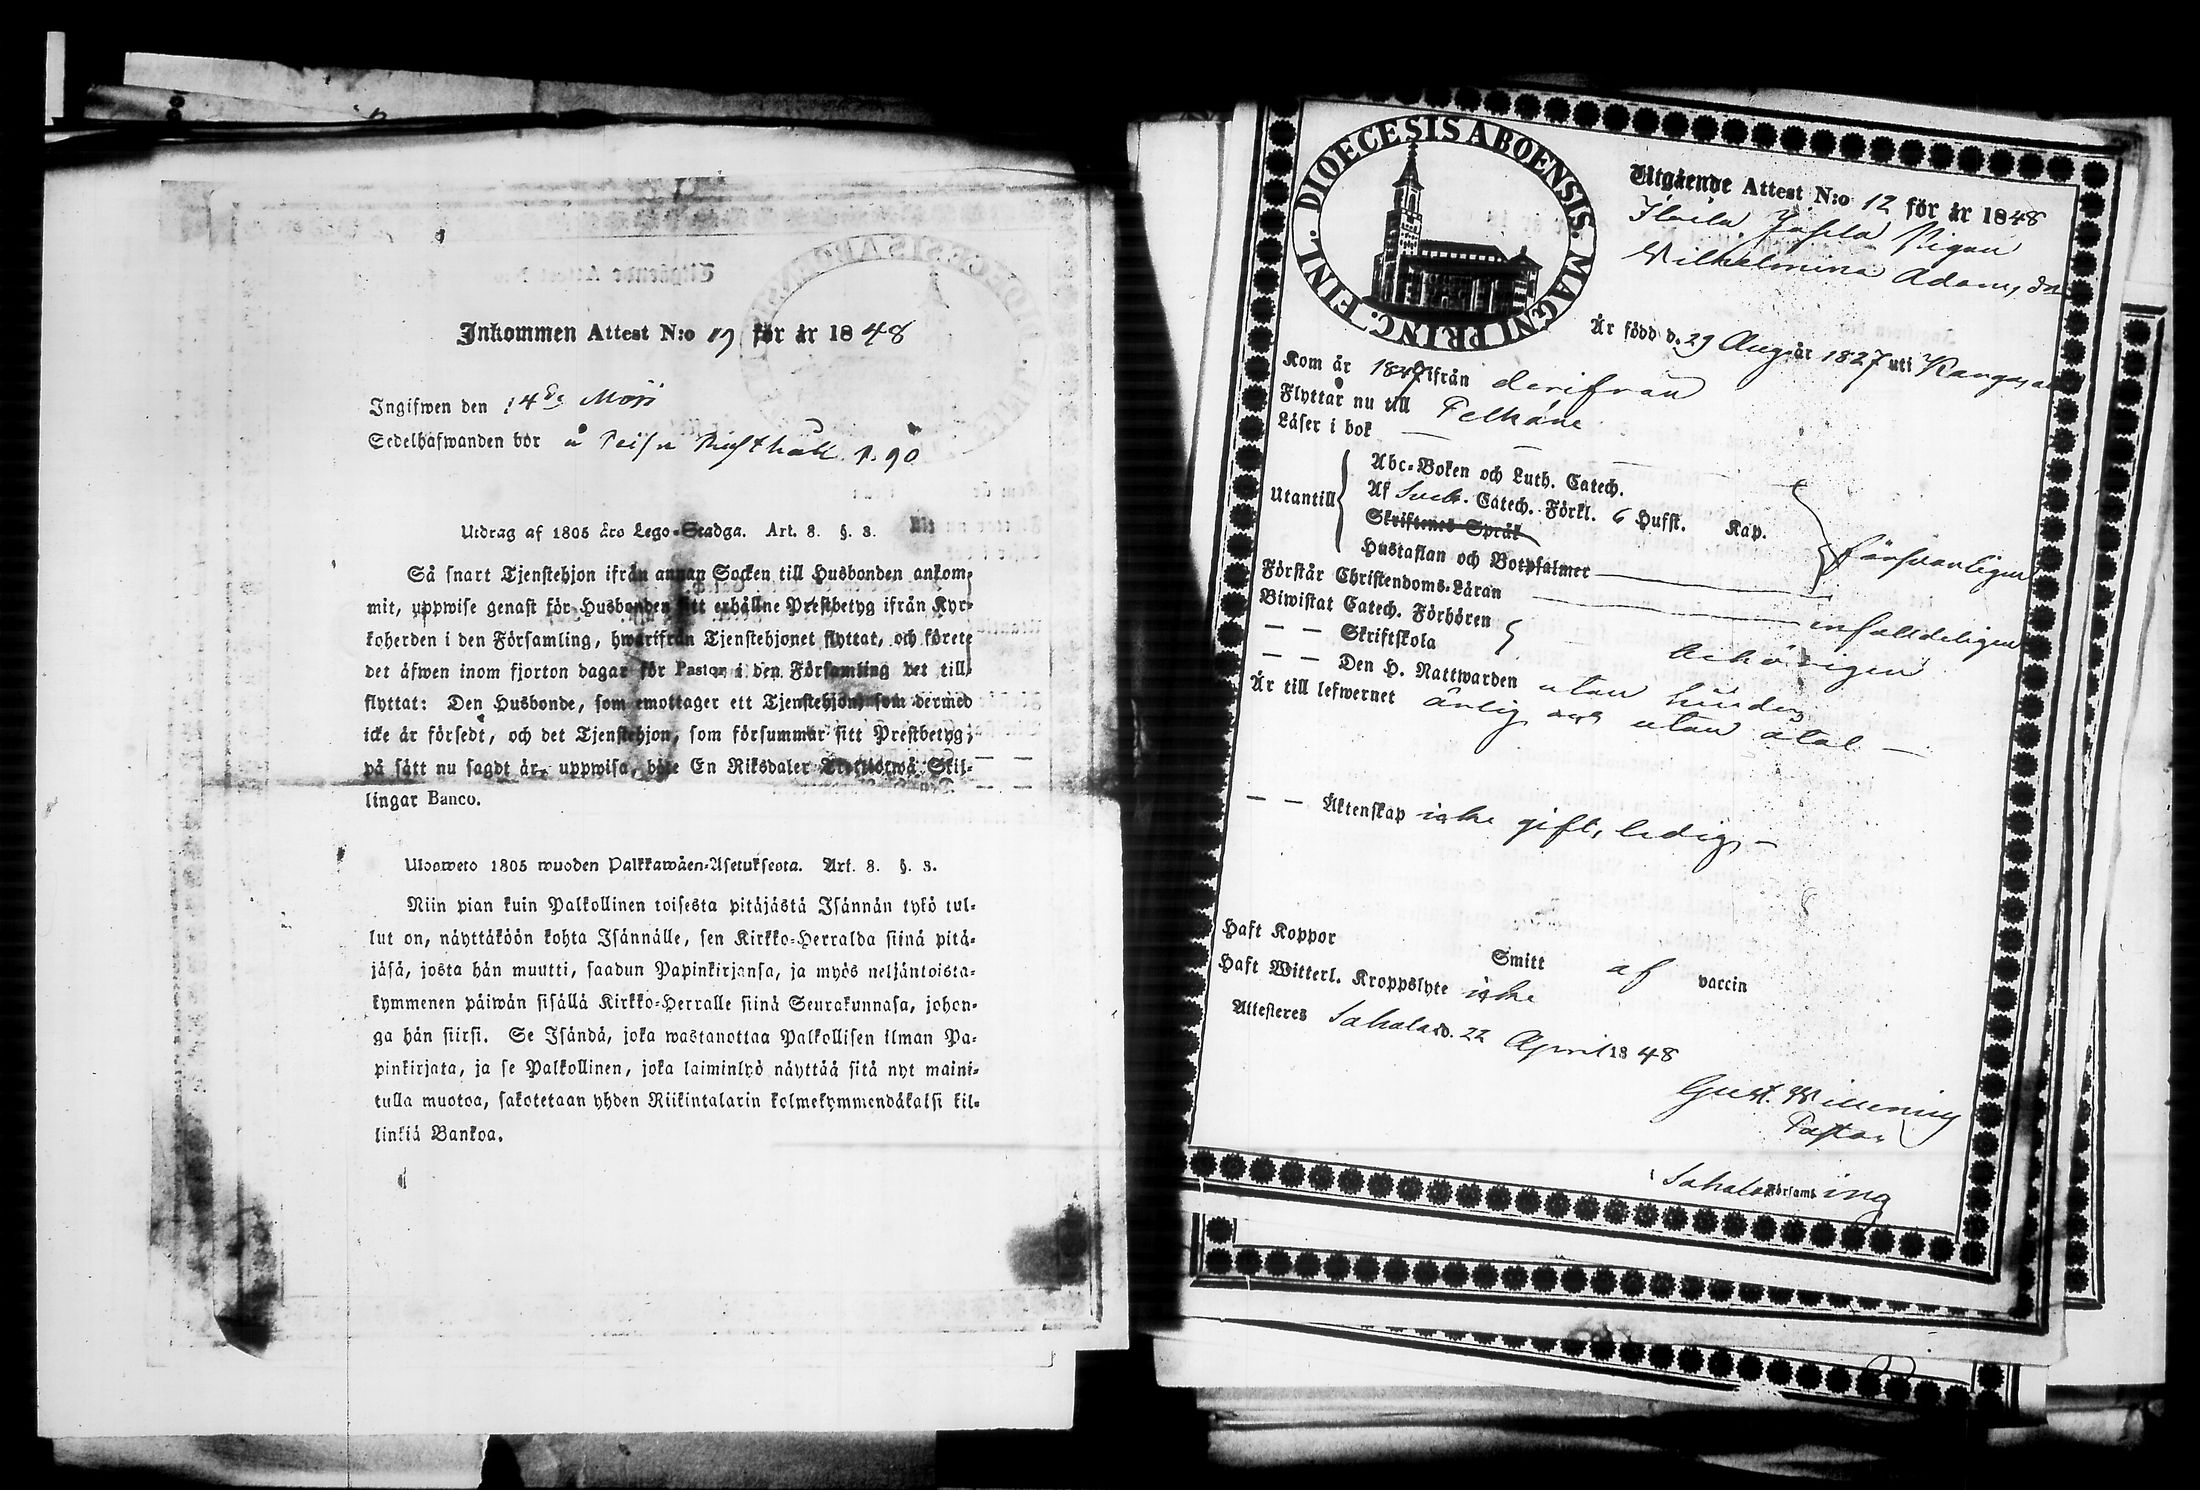 Inkommen Attest N:o 19 för år 1848
Ingifwen den 14de
Sedelhafwanden bor å p. 90
Utdrag af 1805 års Lego-Stadga. Art. 8. §. 3.
Så snart Tjenstehjon ifrån annan Socken till Husbonden ankom-
mit, uppwise genast för Husbonden sitt erhållne Prestbetyg ifrån Kyr-
koherden i den Församling, hwarifrån Tjenstehjonet flyttat, och förete
det äfwen inom fjorton dagar för Pastor i den Församling det till-
flyttat: Den Husbonde, som emottager ett Tjenstehjon, som dermed
icke är försedt, och det Tjenstehjon, som försummar sitt Prestbetyg,
på sätt nu sagdt är, uppwisa, böte En Riksdaler Trettiotwå Skil-
lingar Banco.
Ulosweto 1805 wuoden Palkkawäen-Asetuksesta. Art. 8. §. 3.
Niin pian kuin Palkollinen toisesta pitäjästä Isännän tykö tul-
lut on, näyttäköön kohta Isännälle, sen Kirkko-Herralda siinä pitä-
jäsä, josta hän muutti, saadun Papinkirjansa, ja myös neljäntoista-
kymmenen päiwän sisällä Kirkko-Herralle siinä Seurakunnasa, johon-
ga hän siirsi. Se Isändä, joka wastanottaa Palkollisen ilman Pa-
pinkirjata, ja se Palkollinen, joka laiminlyö näyttää sitä nyt maini-
tulla muotoa, sakotetaan yhden Riikintalarin kolmekymmendäkaksi kil-
linkiä Bankoa.
DIOECESIS ABOENSIS. MAGNI PRINC. FINL.
Utgående Attest N:o 12 för år 1848
Pigan
Wilhelmina Adamsdr
Är född d. 29 Aug år 1827 uti Kangasala
Kom år 1847 ifrån derifrån
Flyttar nu till Pelkäne
Läser i bok
Utantill
Abc-Boken och Luth. Catech.
Af Sveb. Catech. Förkl. 6 Hufst. Kap.
Skriftenes Språk
Hustaflan och Botpsalmer försvarligen
Förstår Christendoms-Läran enfalldeligen
Biwistat Catech. Förhören
— — Skriftskola behörigen
— — Den H. Nattwarden utan hinder
Är till lefwernet ärlig och utan åtal
— — Äktenskap icke gift, ledig
Haft Koppor Smitt af vaccin
Haft Witterl. Kroppslyte icke
Attesteres Sahalax d. 22 April 1848
Gust. Willenius
Pastor
i Sahalax Församling